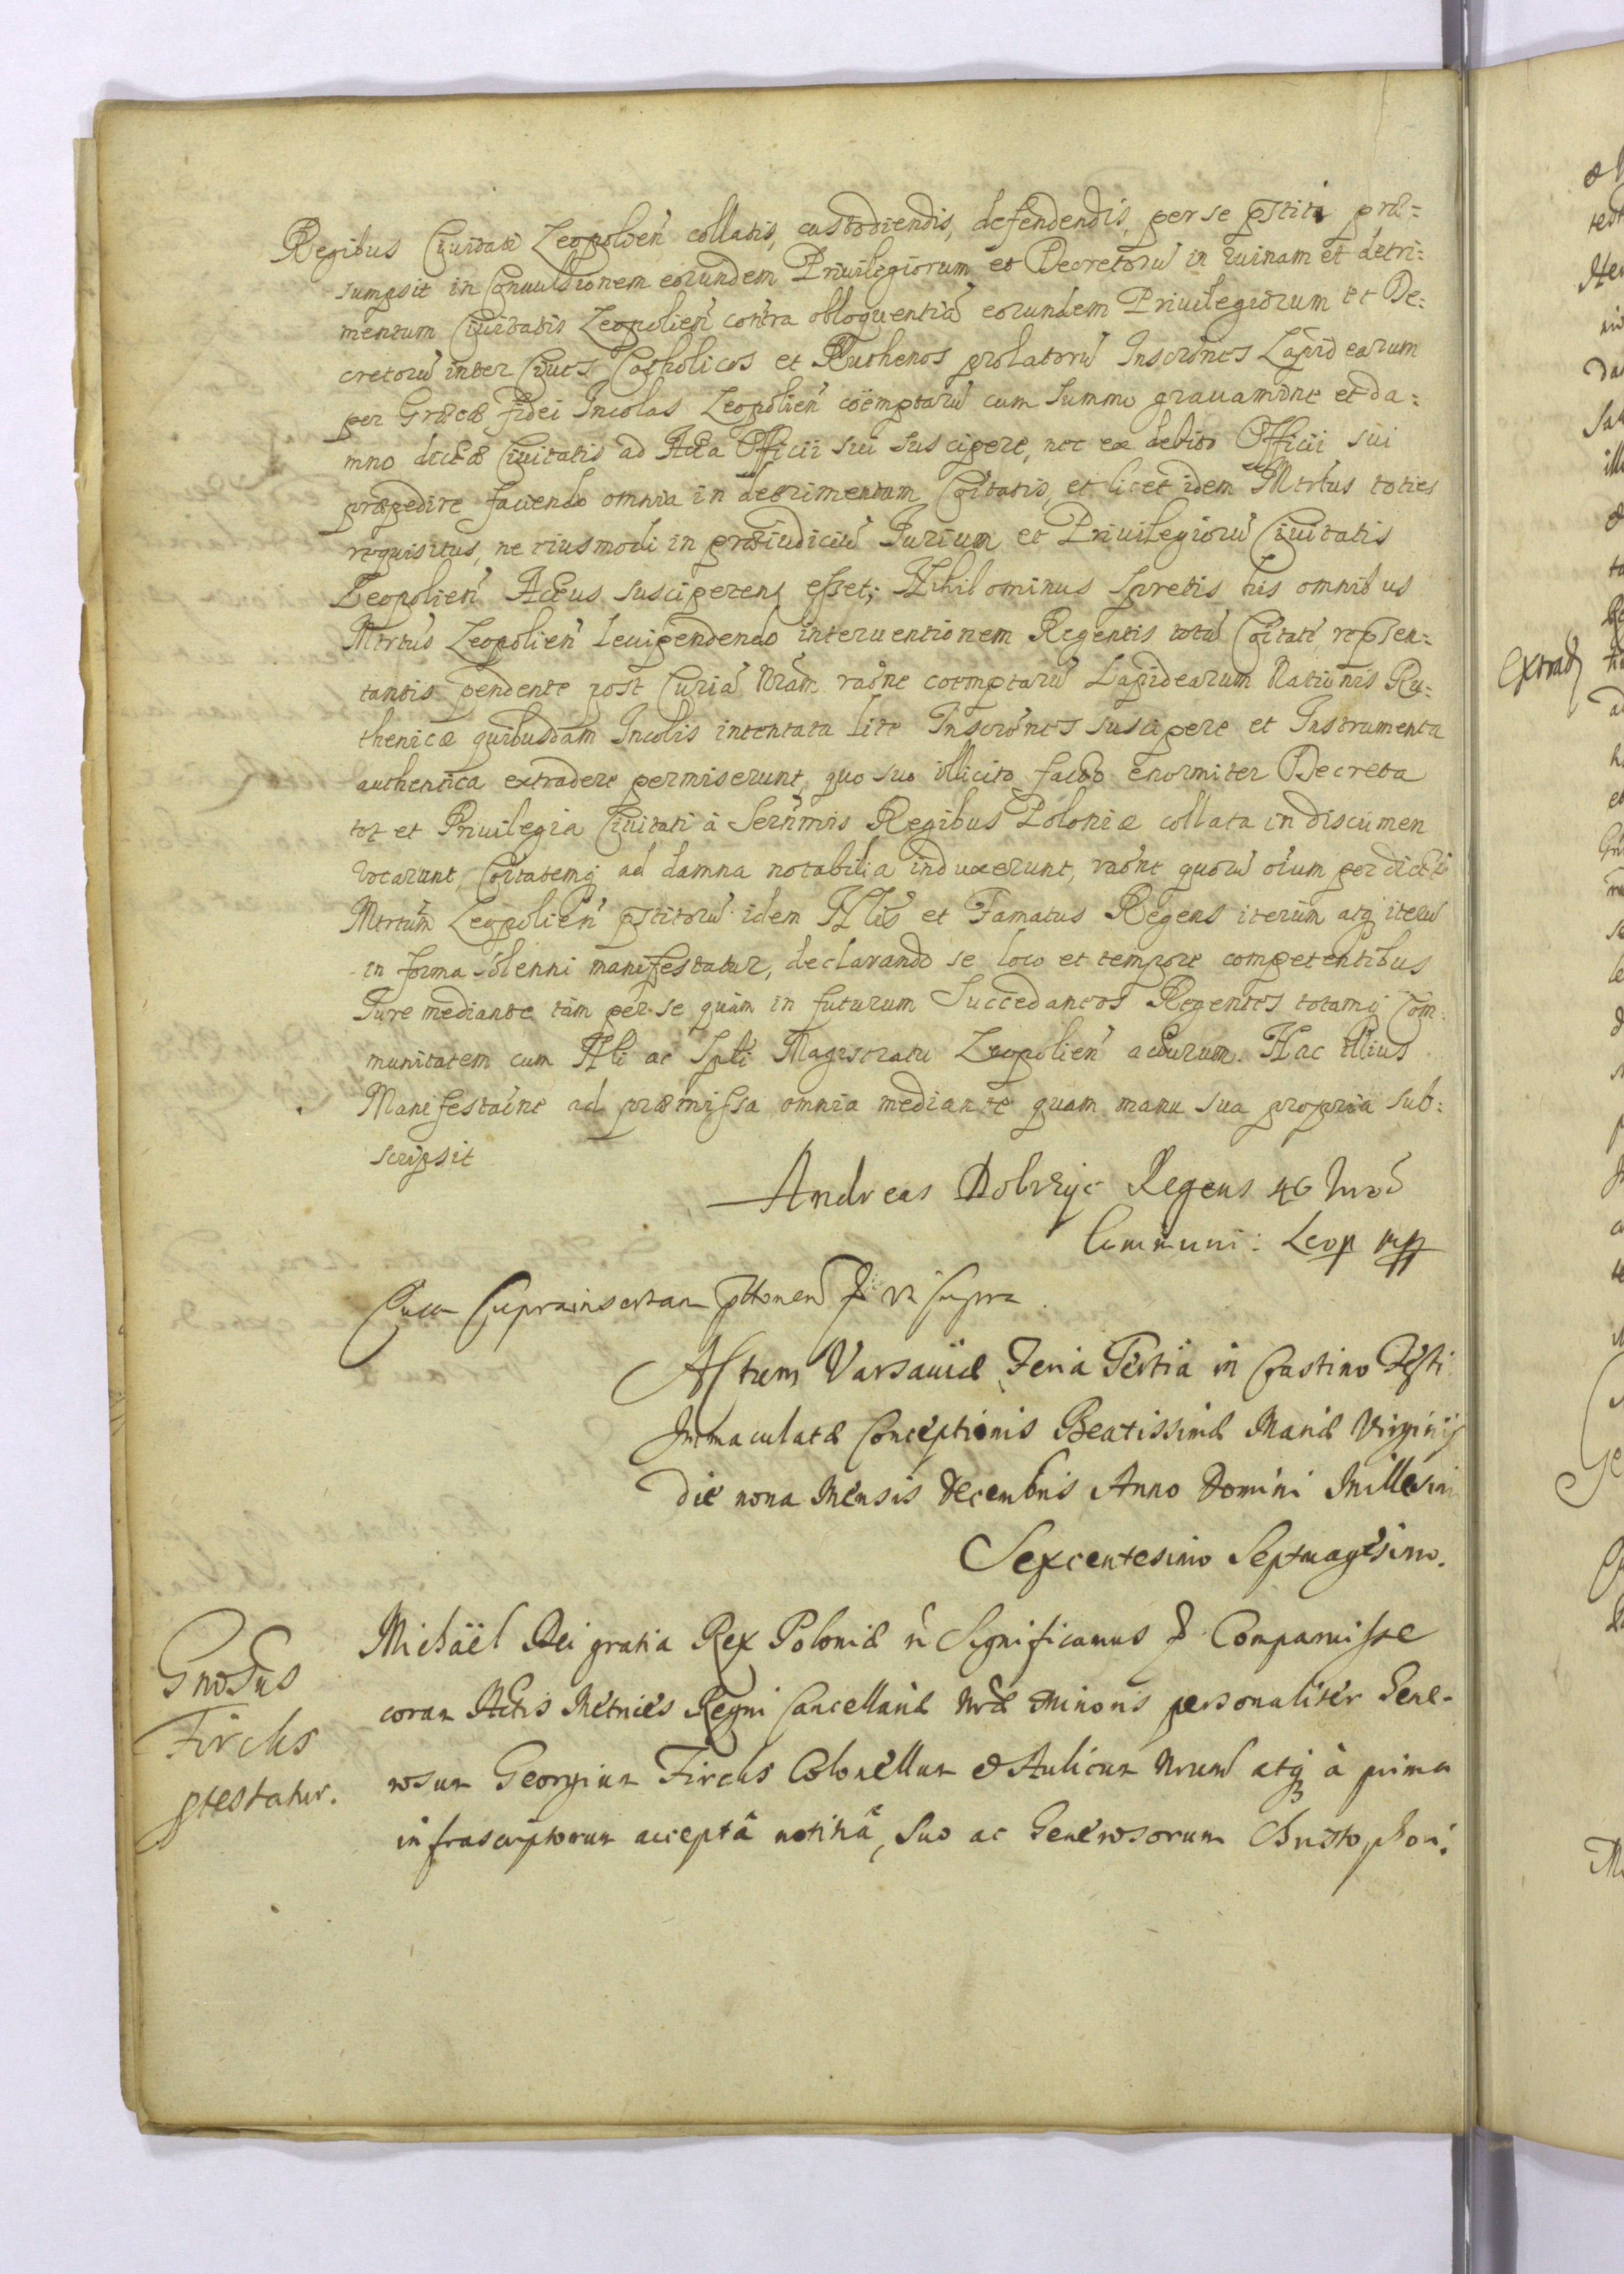 Regibus Civitati Leopolien̄ collatis, custodiendis, defendendis, per se p̄stita præ=
sumpsit in Convulsionem eorundem Privilegiorum et Decretorū in ruinam et detri=
mentum Civitatis Leopolien̄ contra obloquentiā eorundem Privilegiorum et De=
cretorū inter Cives Catholicos et Ruthenos prolatorū Inscrōnes Lapidearum
per Græcæ fidei Incolas Leopolien̄ coëmptarū cum summo gravamine et da=
mno dictæ Civitatis ad Acta Officii sui suscipere, nec ex debito Officii sui
præpedire faciendo omnia in detrimentum Cōitatis, et licet idem Mtrtus toties
requisitus, ne eiusmodi in præiudiciū Jurium et Privilegiorū Civitatis
Leopolien̄ Actus suscipereng esset; Nihilominus spretis his omnibus
Mtrtus Leopolien̄ levipendendo interventionem Regentis totā Cōitatē rep̄sen=
tantis pendente post Curiā Nrām raōne coemptarū Lapidearum Nationis Ru=
thenicæ quibusdam Incolis intentata lite Inscrōnes suscipere et Instrumenta
authentica extradere permiserunt, quo suo illicito facto enormiter Decreta
tot et Privilegia Civitati à Serēnmis Regibus Poloniæ collata in discrimen
vocarunt, Cōitatemq ad damna notabilia induxerunt, raōne quorū oīum per dictū
Mtrtūm Leopolien̄ p̄stitorū idem Nlis et Famatus Regens iterum atq iterū
in forma solenni manifestatur, declarando se loco et tempore competentibus
Jure mediante tàm per se quàm in futurum Succedaneos Regentes totamq Com=
munitatem cum Nli ac Spli Magistratu Leopolien̄ acturum. Hac illius
Manifestaōne ad præmissa omnia mediante quam manu sua propria sub=
scripsit
Andreas Dobrzyc Regens 40
Communi: Leop mpp
Cuā suprainsertam p̄ttonem & ut supra.
Actum Varsaviæ Feria Tertia in Crastino Festi
Immaculatæ Conceptionis Beatissimæ Mariæ Virginis
die nona Mensis Decembris Anno Domini Millesimo
Sexcentesimo Septuagesimo.
Gnosus
Firchs
ptestatur.
Michäel Dei gratia Rex Poloniæ & Significamus & Comparuisse
coram Actis Metrices Regni Cancellariæ Nræ Minoris personaliter Gene-
rosum Georgium Firchs Colonellum & Aulicum Nrum atq à prima
infrascriptorum acceptâ notitiâ, suo ac Generosorum Christophori
Extrad